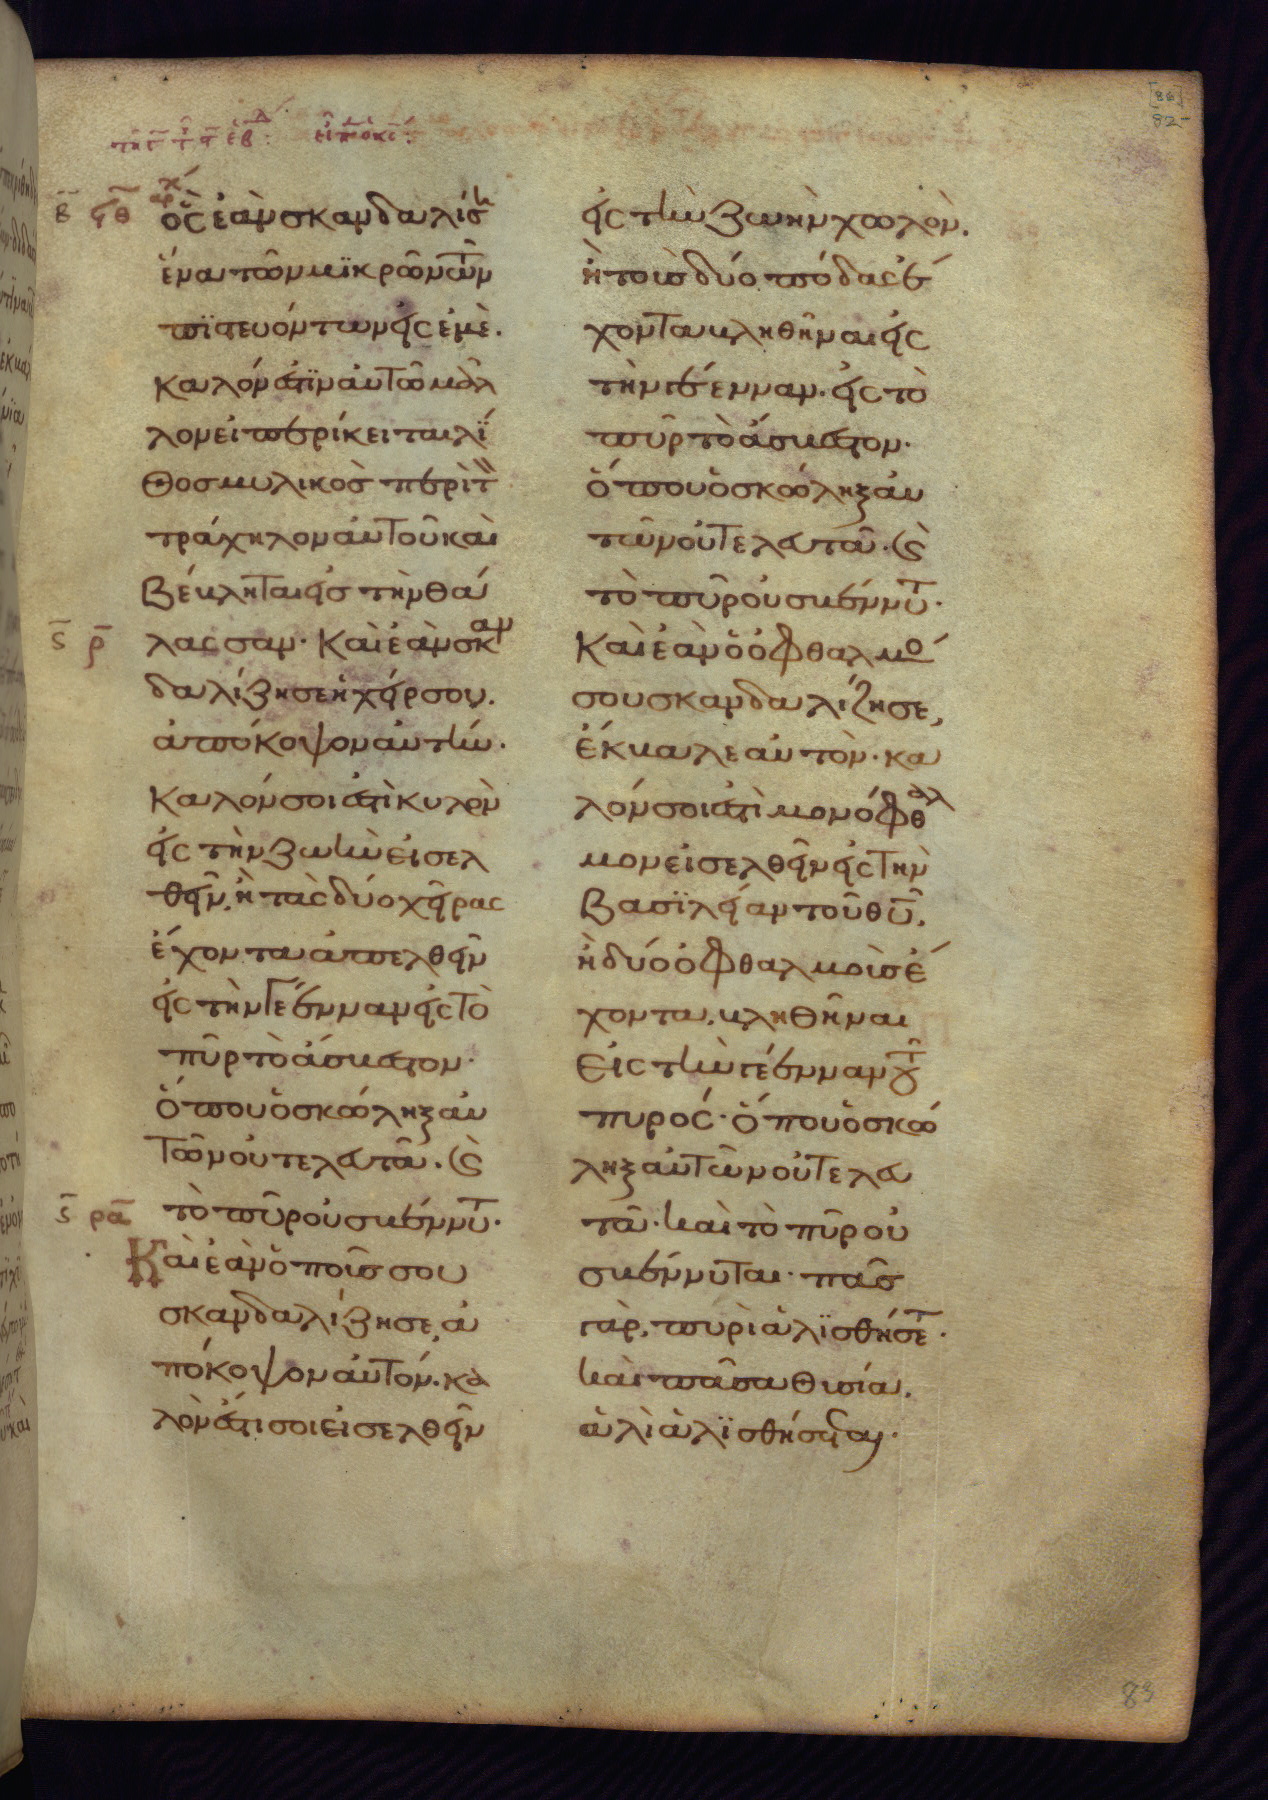 [86]
82
ὃς ἐὰν σκανδαλίσῃ
ἕνα τῶν μϊκρῶν τῶν
πϊστευόντων εἰς ἐμὲ.
καλόν ἐστϊν αὐτῶ μᾶλ
λον εἰ περίκειται λΐ
θος μυλϊκὸς περὶ τὸν
τράχηλον αὐτοῦ καὶ
βέβληται εἰς τὴν θά
λασσαν. Καὶ ἐὰν σκαν
δαλίζησε ἡ χείρ σου.
ἀπόκοψον αὐτήν.
καλόν σοι ἐστὶ κυλὸν
εἰς τὴν ζωὴν εἰσελ
θεῖν, ἢ τὰς δύο χεῖρας
ἔχοντα ἀπελθεῖν
εἰς τὴν γέενναν εἰς τὸ
πῦρ τὸ ἄσβεστον.
ὅπου ὁ σκώληξ αὐ
τῶν οὐ τελευτᾶ. ϗ
τὸ πῦρ οὐ σβέννυτ.
Καὶ ἐὰν ὁ ποῦς σου
σκανδαλίζησε, ἀ
πόκοψον αὐτόν. κα
λὸν ἐστι σοι εἰσελθεῖν
εἰς τὴν ζωὴν χωλὸν.
ἢ τοὺς δύο πόδας ἔ
χοντα βληθῆναι εἰς
τὴν γέενναν. εἰς τὸ
πῦρ τὸ ἄσβεστον.
ὅπου ὁ σκώληξ αὐ
τῶν οὐ τελευτᾶ. ϗ
τὸ πῦρ οὐ σβέννυτ.
Καὶ ἐὰν ὁ ὀφθαλμό
σου σκανδαλίζησε,
ἔκβαλε αὐτὸν. κα
λόν σοι ἐστὶ μονόφθαλ
μον εἰσελθεῖν εἰς τὴν
βασϊλείαν τοῦ θυ.
ἢ δύο ὀφθαλμοὺς ἔ
χοντα. βληθῆναι
Εἰς τὴν γέενναν τοῦ
πυρός. ὅπου ὁ σκώ
ληξ αὐτῶν οὐ τελευ
τᾶ. καὶ τὸ πῦρ οὐ
σβέννυται. πᾶς
γὰρ, πυρὶ ἁλϊσθήσετ.
καὶ πᾶσα θυσία.
ἁλὶ ἁλϊσθήσεται.
β ϙθ
ϛ ρ
ϛ ρα
83